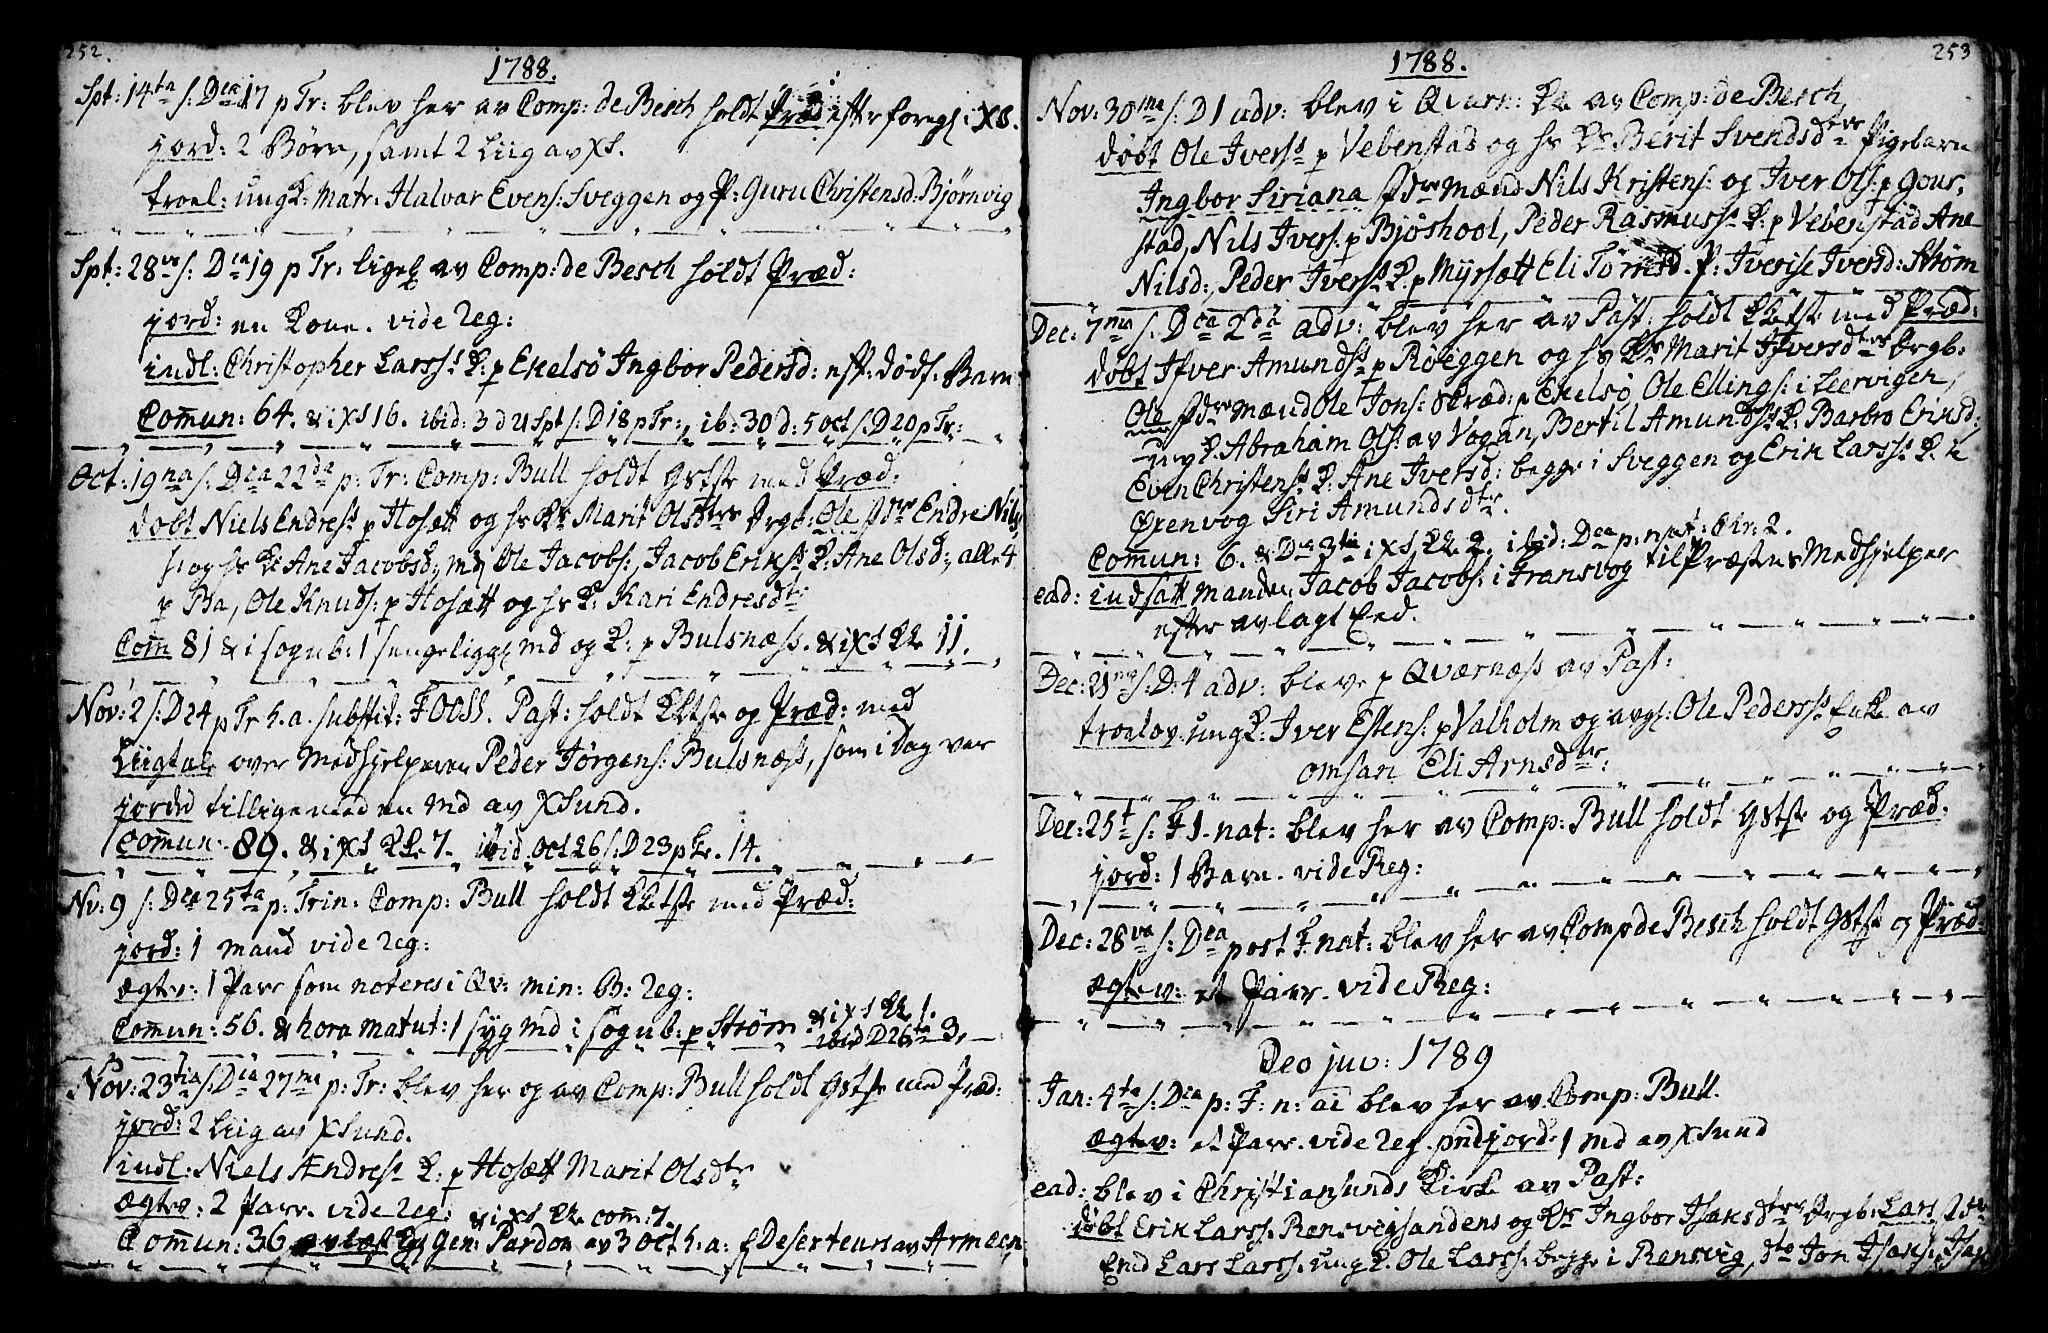 252.
1788.
Spt: 14ta s: Dca 17 p Tr: blev her av Comp: de Besch holdt Præd: efter foregl: i XS.
jord: 2 Börn, samt 2 Liig av XS.
troel: ung K: Matr: Halvar Evens: Sveggen og P: Guru Christensd: Bjørnvig
Spt: 28va s: Dca 19 p Tr: ligel av Comp: de Besch holdt Præd:
jord: en Kone. vide Reg:
indl: Christopher Larss: K: p Ekelsö Ingbor Pedersd: eft: dödf: Barn
Com̅un: 64. & i XS 16. ibid: 3 d 21 Spt s: D 18 p Tr:, ib: 30 d: 5 oct s: D 20 p Tr:
Oct: 19na s: Dca 22da p: Tr: Comp: Bull holdt Gstste med Præd:
döbt Niels Endress: p Hosett og hs Ks Marit Olsdters Drgb: Ole fdre Endre Nils
s: og hs K: Ane Jacobsd:, md Ole Jacobs:, Jacob Erikss: K: Ane Olsd:, alle 4
p Bæ, Ole Knuds: p Hosætt og hs K: Kari Endresdtr
Com̅ 81 & i sognb: 1 sengeliggl md og K: p Bulsnæss. & i XS Ke 11.
Nov: 2 s: D 24 p Tr h. a. substit: F OOSS. Past: holdt Ktste og Præd: med
Liigtale over Medhjelperen Peder Jörgens: Bulsnæss, som i Dag var
jordet tilligemed en Md av XSund.
Com̅un: 89. & i XS Ke. 7. ibid Oct 26 s: D 23 p Tr. 14.
Nv: 9 s: Dca 25ta p: Trin: Comp: Bull holdt Ktste med Præd:
jord: 1 mand vide reg:
ægtev: 1 Parr som noteres i Qv: min: B: reg:
Com̅un: 56. & hora matut: 1 syg md i sognb: p Strøm & i XS Ke 1.
ibid D 26ta 3.
Nov: 23tia s: Dca 27ma p: Tr: blev her og av Comp: Bull holdt Gstste med Præd:
jord: 2 Liig av XSund.
indl: Niels Ændres: K: p Hosætt Marit Olsdtr
ægtev: 2 Parr. vide reg: & i XS Ke com: 7.
Com̅un: 36 Gen: Pardon av 3 Oct h: a: f Deserteurs av Armeen
253
1788.
Nov: 30ma s: D 1 adv: blev i Qværn: Ke av Comp: de Besch,
döbt Ole Iverss: p Vebenstad og hs Ks Berit Svendsdters Pigebarn
Ingbor Siriana fdre Mænd Nils Kristens: og Iver Ols: p Gour,
stad, Nils Ivers: p Bjöshool, Peder Rasmuss: K: p Vebenstad Ane
Nilsd:, Peder Iverss: K: p Myrsætt Eli Törresd. P: Iverise Iversd: Strøm
Dec: 7ma s: Dca 2da adv: blev her av Past: holdt Ktste med Præd:
döbt Ifver Amundss: p Röeggen og hs Ks Marit Ifversdters Drgb:
Ole fdre mænd Ole Jons: Skræd: p Ekelsö, Ole Ellings: i Leervigen,
ung K. Abraham Ols: av Vogan, Bertil Amundss: K: Barbro Eriksd:,
Even Christenss: K: Ane Iversd: begge i Sveggen og Erik Larss: K. i
Oxenvog Siri Amundsdtr.
Com̅un: 6. & Dca 3tia i XS Ke 2. ibid: Dca p: nat: Chr: 2.
ead: indsatt Manden Jacob Jacobs: i Fransvog til Præstens Medhjelper
efter avlagt Eed.
Dec: 21ma s: D: 4 adv: bleve p Qværnæss av Past:
troelov: ung K: Iver Estens: p Valholm og avgl: Ole Pederss: Enke av
omsan Eli Arnsdtr:
Dec: 25t s: F 1. nat: blev her av Comp: Bull holdt Gstste og Præd:
jord: 1 Barn. vide Reg:
Dec: 28va s: Dca post F. nat: blev her av Comp de Besch holdt Gstst og Præd:
ægtev: et Parr. vide Reg:
Deo juv: 1789
Jan: 4ta s: Dca p: F: n: ai blev her av Comp: Bull.
ægtev: et Parr. vide reg. jord: 1 md av XSund
ead: blev i Christiansunds Kirke av Past:
döbt Erik Larss: Rensvigsandens og Ks Ingbor Isaksdters Drgb: Lars, fdre
Emd Lars Larss: ung K. Ole Larss: begge i Rensvig, dto Jon Isaks: